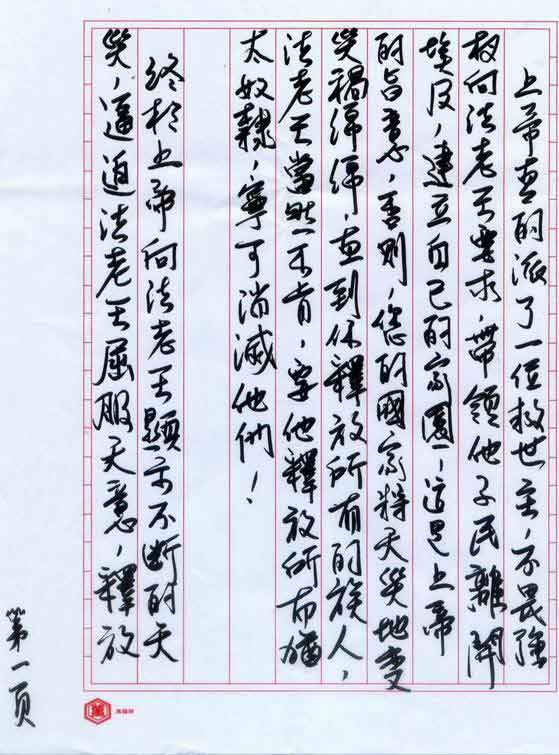 上帝真的派了一位救世主,不畏強
权向法老王要求,帶領他子民離開
埃及,建立自己的家園,這是上帝
的旨意,否則,您的國家将天災地变
災禍綿綿,直到你釋放所有的族人,
法老王當然不肯,要他釋放所有猶
太奴隸,寧可消滅他們!
終於上帝向法老王顯示不斷的天
災,逼迫法老王屈服天意,釋放
第一頁